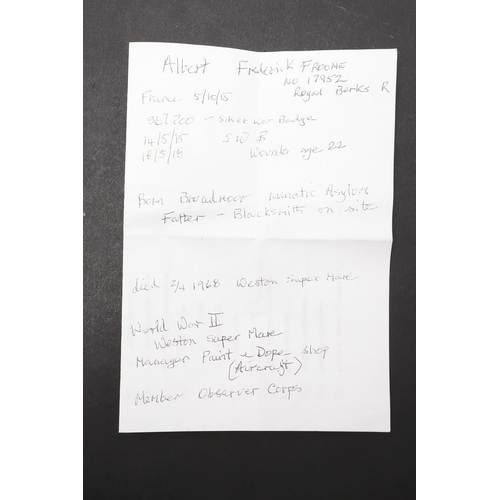 Albert Frederick FROOME
No 17952
Royal Berks R
France 5/10/15
367200 - Silver War Badge
14/5/15 S W B
18/5/18 Wounds age 22
Born Broadmoor Lunatic Asylum
Father - Blacksmith on site
died 1968 Weston Super Mare
World War II
Weston Super Mare
Manager Paint & Dope shop
(Aircraft)
Member Observer Corps